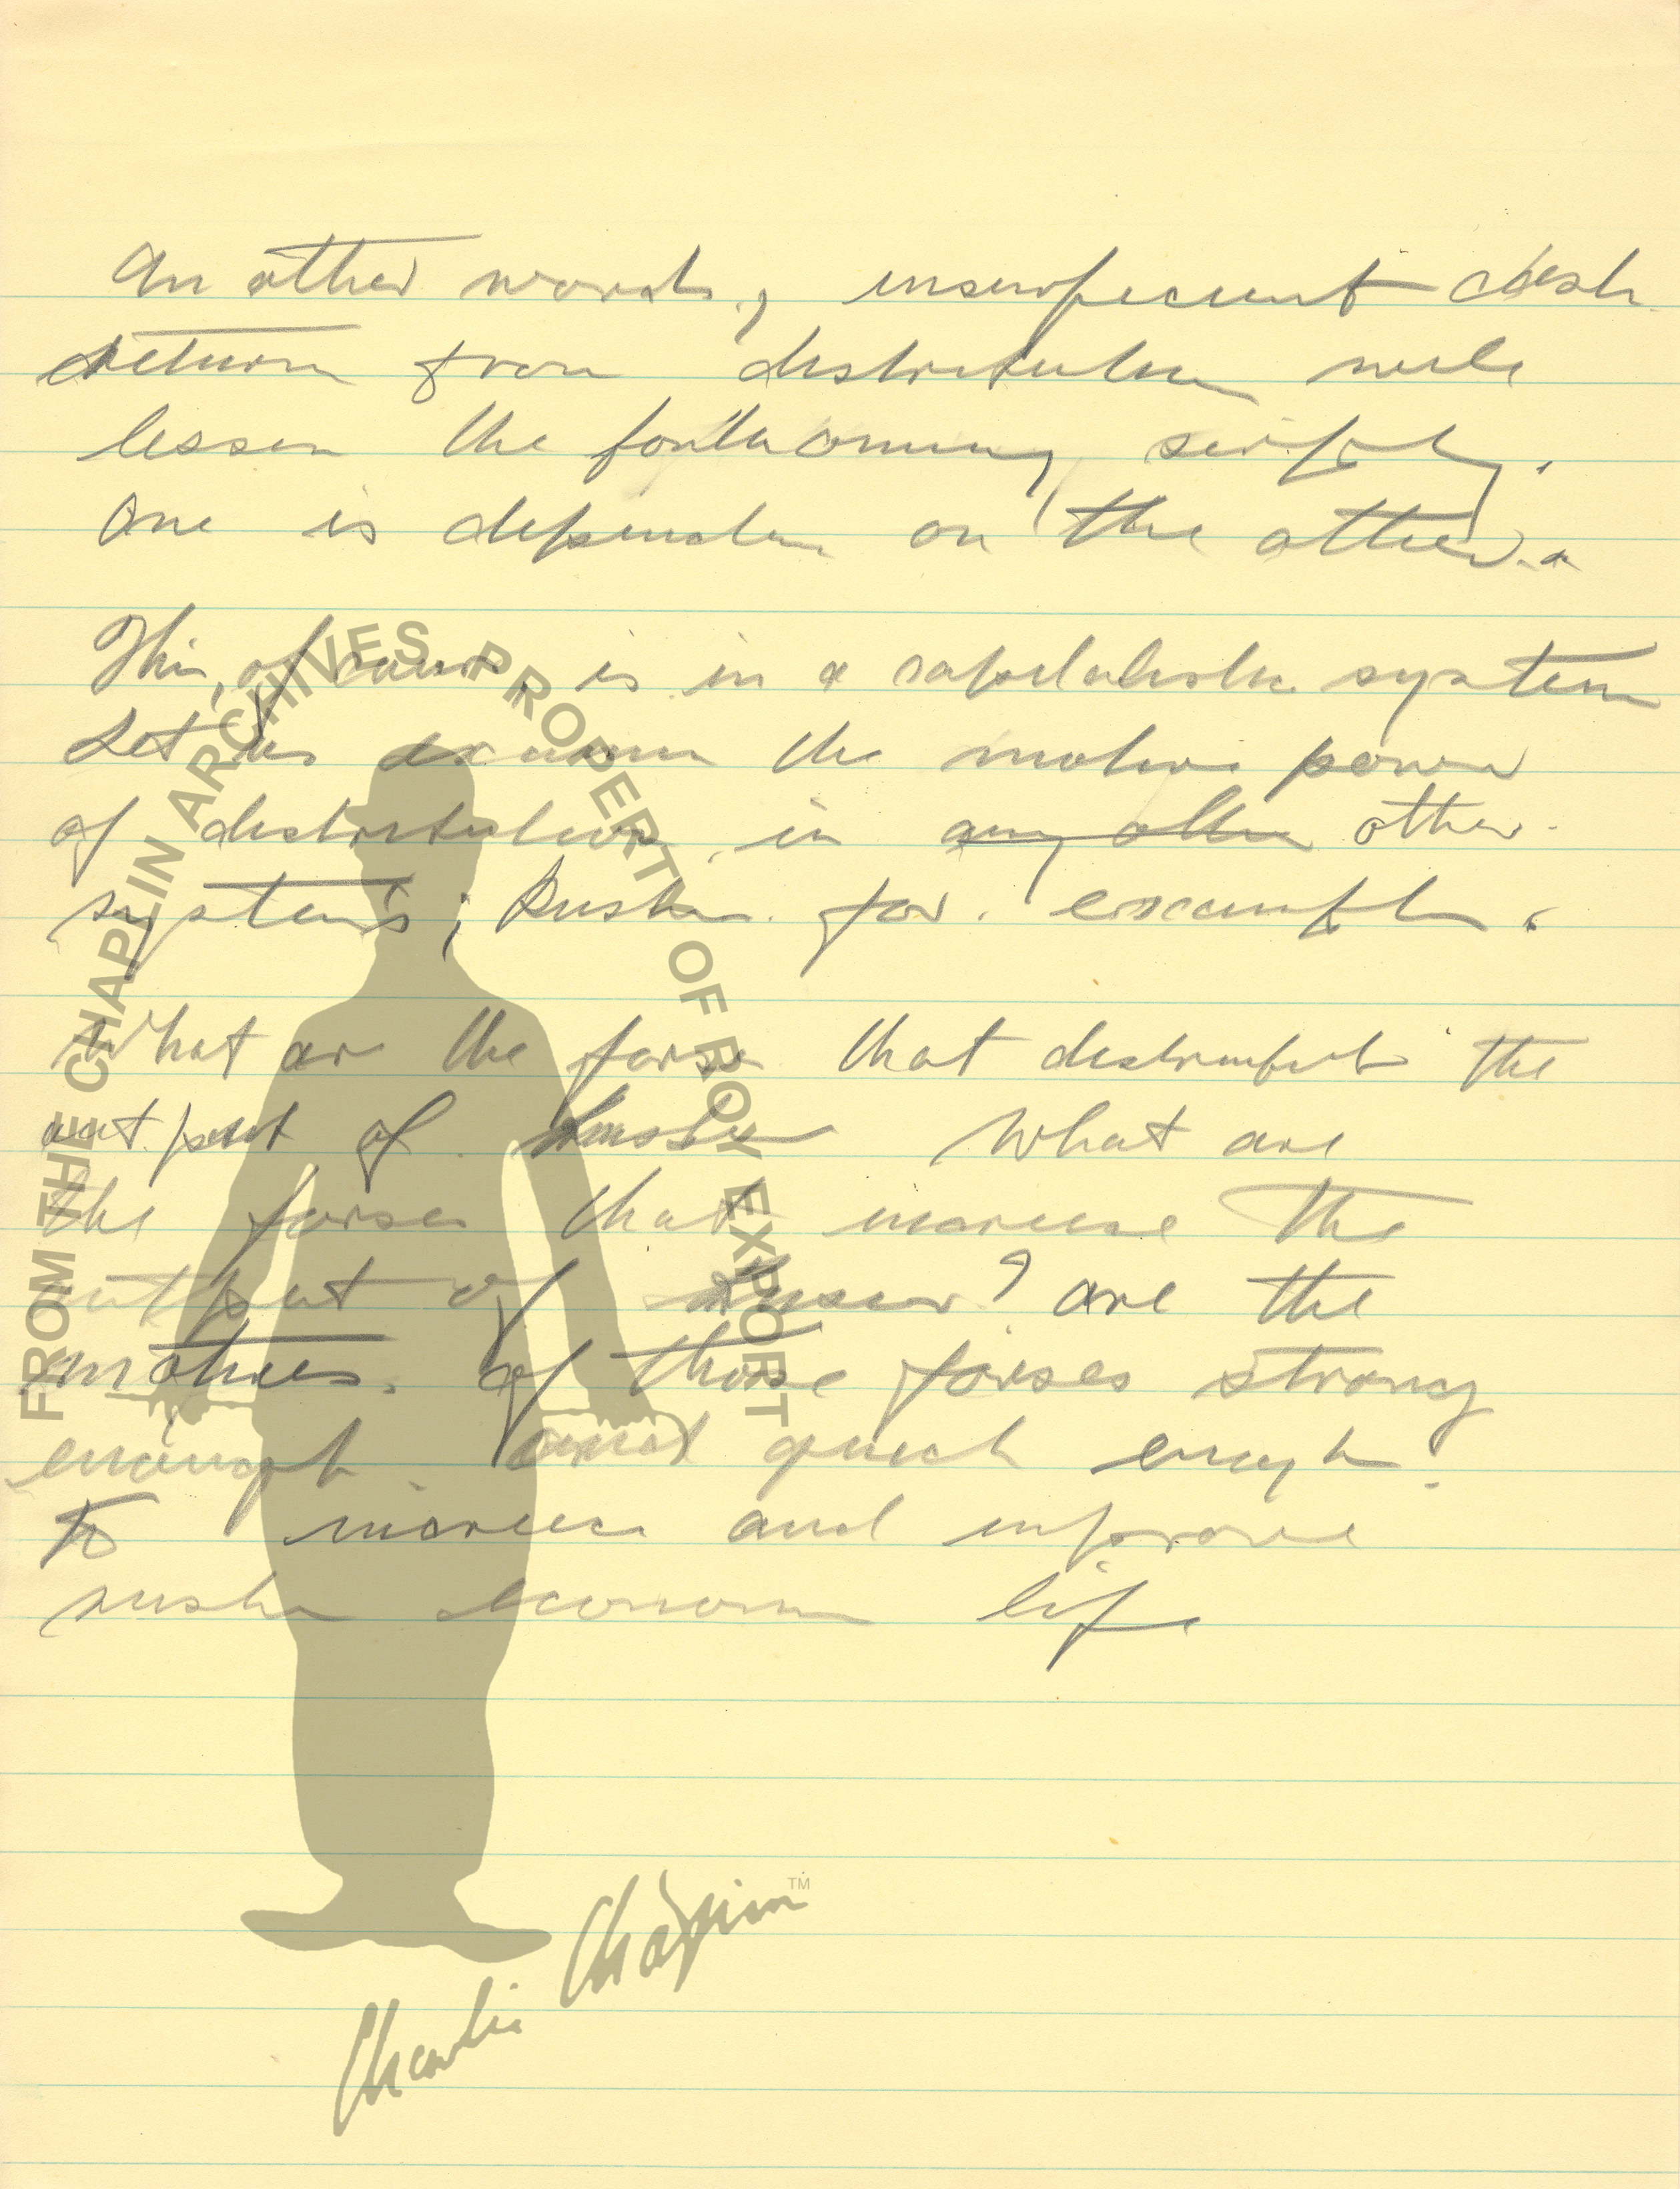 In other words, insurficient cash
return from distribution will
lessen the forthcoming surply.
One is dependen on the other.
This, of course, is in a capitalistic system
Let us examin the motive power
of distribution, in any other other
systems; Russia for example.
What are the forses that distribute the
output of Russia What are
the forses that increase the
output of Russia? are the
motives of those forses strong
enough and quick enough
to increase and improve
russia economic life
FROM THE CHAPLIN ARCHIVES PROPERTY OF ROY EXPORT
Charlie Chaplin TM